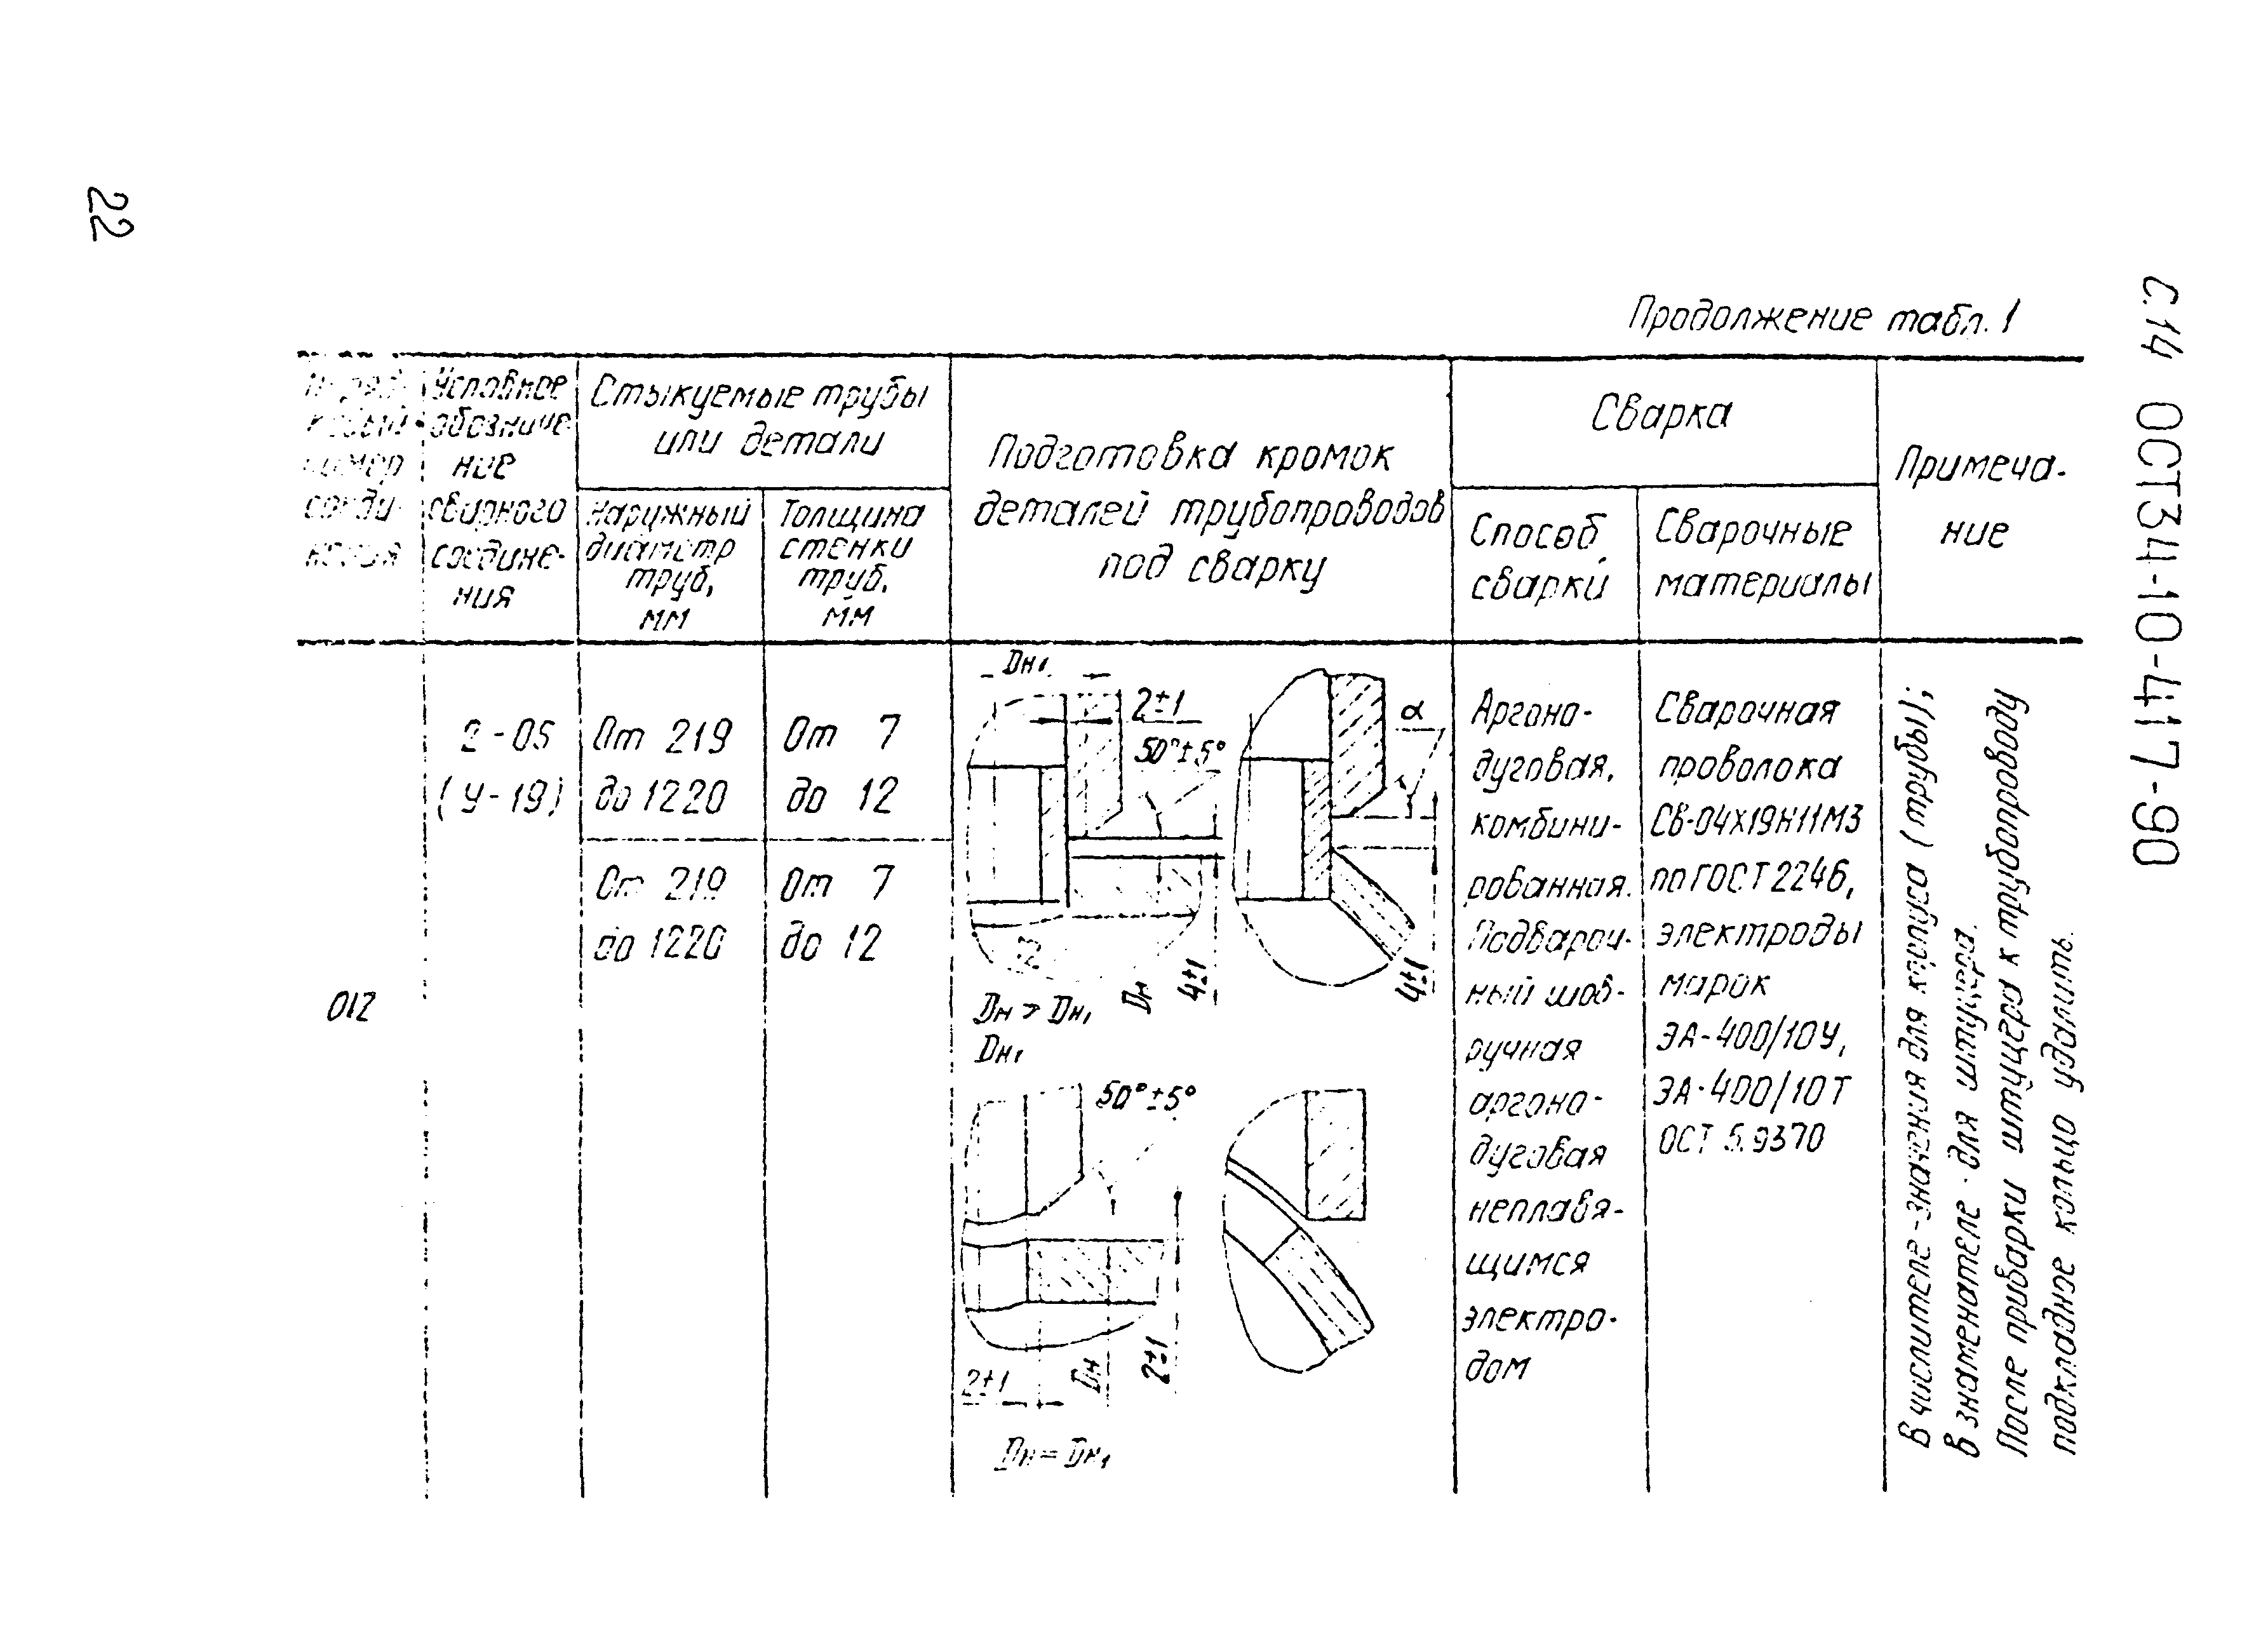 22
С.14 ОСТ34-10-417-90
Продолжение табл. 1
номер
соеди-
нения
Условное
обозначе-
ние
сварного
соедине-
ния
Стыкуемые трубы
или детали
Наружный
диаметр
труб,
мм
Толщина
стенки
труб,
мм
Подготовка кромок
деталей трубопроводов
под сварку
Сварка
Способ
сварки
Сварочные
материалы
Примеча-
ние
012
2-05
(У-19)
От 219
до 1220
От 219
до 1220
От 7
до 12
От 7
до 12
Dн₁
2±1
50°±5°
α
Dн
4±1
4±1
Dн > Dн₁
Dн₁
50°±5°
2±1
Dн
2±1
Dн = Dн₁
Аргоно-
дуговая,
комбини-
рованная.
Подвароч-
ный шов-
ручная
аргоно-
дуговая
неплавя-
щимся
электро-
дом
Сварочная
проволока
Св-04Х19Н11М3
по ГОСТ 2246,
электроды
марок
ЭА-400/10У,
ЭА-400/10Т
ОСТ 5.9370
В числителе-значения для корпуса (трубы);
в знаменателе - для штуцера.
После приварки штуцера к трубопроводу
подкладное кольцо удалить.